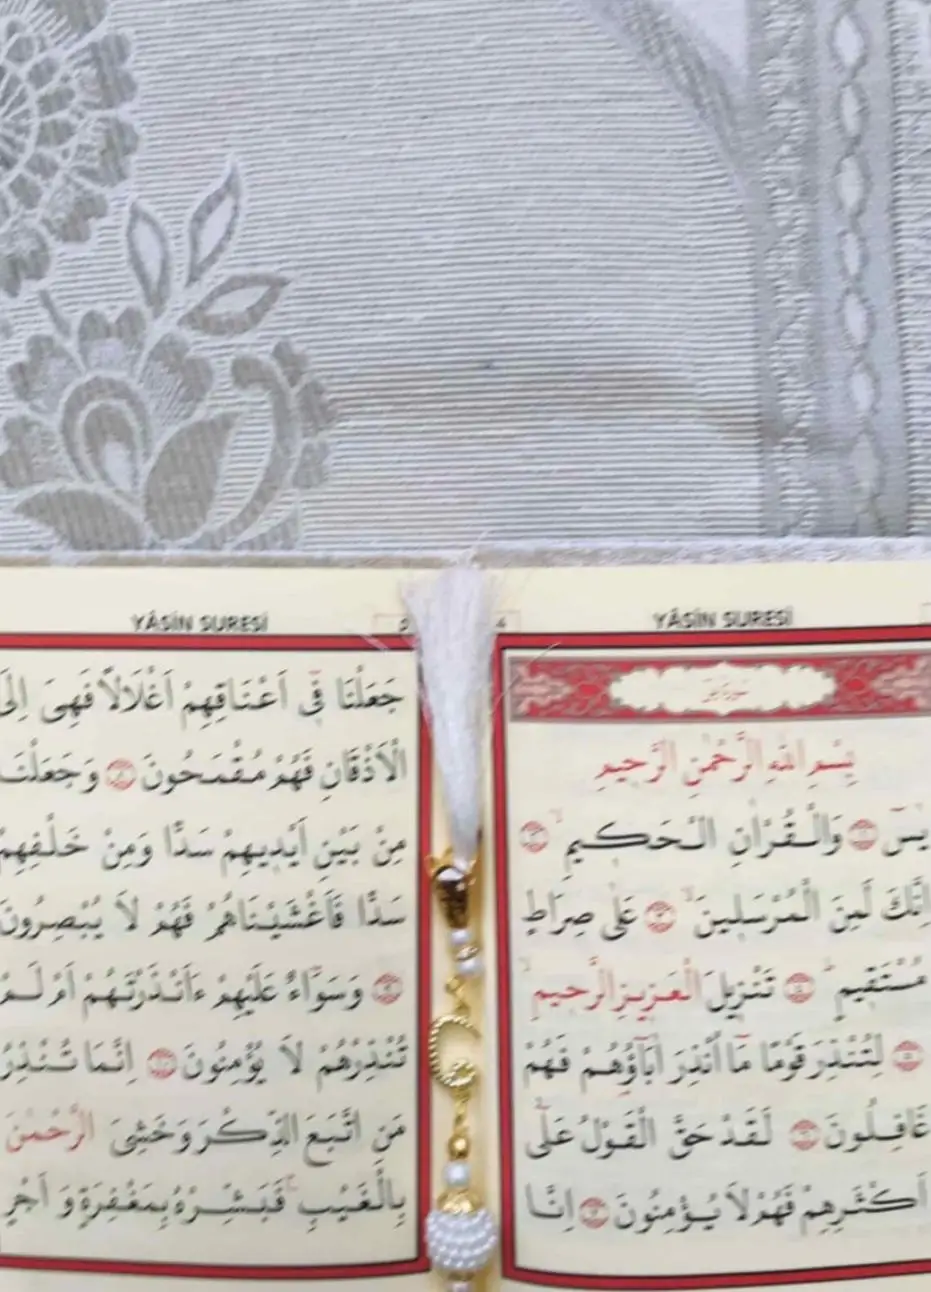 YÂSİN SURESİ
بِسْمِ اللّٰهِ الرَّحْمٰنِ الرَّحٖيمِ
يٰسٓ ﴿١﴾ وَالْقُرْاٰنِ الْحَكٖيمِ ﴿٢﴾
اِنَّكَ لَمِنَ الْمُرْسَلٖينَ ﴿٣﴾ عَلٰى صِرَاطٍ
مُسْتَقٖيمٍ ﴿٤﴾ تَنْزٖيلَ الْعَزٖيزِ الرَّحٖيمِ
﴿٥﴾ لِتُنْذِرَ قَوْمًا مَٓا اُنْذِرَ اٰبَٓاؤُ۬هُمْ فَهُمْ
غَافِلُونَ ﴿٦﴾ لَقَدْ حَقَّ الْقَوْلُ عَلٰٓى
اَكْثَرِهِمْ فَهُمْ لَا يُؤْمِنُونَ ﴿٧﴾ اِنَّا
YÂSİN SURESİ
جَعَلْنَا فٖٓى اَعْنَاقِهِمْ اَغْلَالًا فَهِىَ اِلَى
الْاَذْقَانِ فَهُمْ مُقْمَحُونَ ﴿٨﴾ وَجَعَلْنَا
مِنْ بَيْنِ اَيْدٖيهِمْ سَدًّا وَمِنْ خَلْفِهِمْ
سَدًّا فَاَغْشَيْنَاهُمْ فَهُمْ لَا يُبْصِرُونَ
﴿٩﴾ وَسَوَٓاءٌ عَلَيْهِمْ ءَاَنْذَرْتَهُمْ اَمْ لَمْ
تُنْذِرْهُمْ لَا يُؤْمِنُونَ ﴿١٠﴾ اِنَّمَا تُنْذِرُ
مَنِ اتَّبَعَ الذِّكْرَ وَخَشِىَ الرَّحْمٰنَ
بِالْغَيْبِ فَبَشِّرْهُ بِمَغْفِرَةٍ وَاَجْرٍ